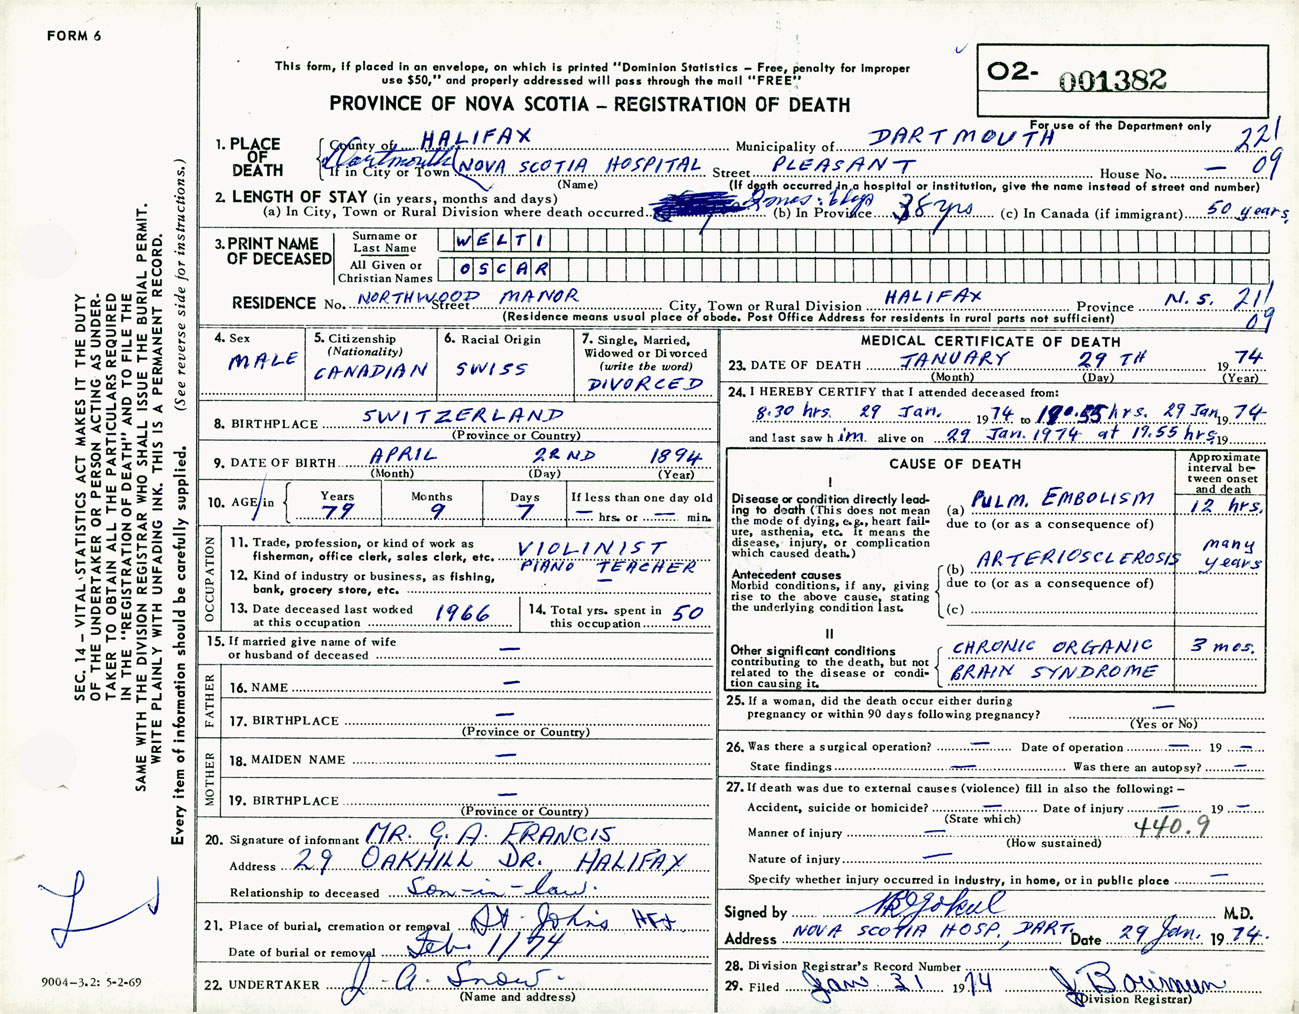 FORM 6
This form, if placed in an envelope, on which is printed "Dominion Statistics – Free, penalty for improper
use $50," and properly addressed will pass through the mail "FREE"
PROVINCE OF NOVA SCOTIA – REGISTRATION OF DEATH
O2- 001382
For use of the Department only
1. PLACE OF DEATH
County of HALIFAX Municipality of DARTMOUTH 221
Dartmouth If in City or Town NOVA SCOTIA HOSPITAL Street PLEASANT House No. — 09
(Name) (If death occurred in a hospital or institution, give the name instead of street and number)
2. LENGTH OF STAY (in years, months and days)
(a) In City, Town or Rural Division where death occurred (b) In Province 38 yrs (c) In Canada (if immigrant) 50 years
3. PRINT NAME OF DECEASED
Surname or Last Name WELTI
All Given or Christian Names OSCAR
RESIDENCE No. NORTHWOOD MANOR Street City, Town or Rural Division HALIFAX Province N.S. 211
09
(Residence means usual place of abode. Post Office Address for residents in rural parts not sufficient)
4. Sex MALE
5. Citizenship (Nationality) CANADIAN
6. Racial Origin SWISS
7. Single, Married, Widowed or Divorced (write the word) DIVORCED
8. BIRTHPLACE SWITZERLAND
(Province or Country)
9. DATE OF BIRTH APRIL 22ND 1894
(Month) (Day) (Year)
10. AGE in Years 79 Months 9 Days 7 If less than one day old — hrs. or — min.
OCCUPATION
11. Trade, profession, or kind of work as VIOLINIST
fisherman, office clerk, sales clerk, etc. PIANO TEACHER
12. Kind of industry or business, as fishing, —
bank, grocery store, etc.
13. Date deceased last worked at this occupation 1966
14. Total yrs. spent in this occupation 50
15. If married give name of wife
or husband of deceased —
FATHER
16. NAME —
17. BIRTHPLACE —
(Province or Country)
MOTHER
18. MAIDEN NAME —
19. BIRTHPLACE —
(Province or Country)
20. Signature of informant MR. G. A. FRANCIS
Address 29 OAKHILL DR. HALIFAX
Relationship to deceased Son-in-law.
21. Place of burial, cremation or removal St. John's Hfx
Date of burial or removal Feb. 1/74
22. UNDERTAKER J. A. Snow.
(Name and address)
MEDICAL CERTIFICATE OF DEATH
23. DATE OF DEATH JANUARY 29TH 1974
(Month) (Day) (Year)
24. I HEREBY CERTIFY that I attended deceased from:
8.30 hrs. 29 Jan. 1974 to 19.55 hrs. 29 Jan 1974
and last saw him alive on 29 Jan. 1974 at 19.55 hrs. 19
CAUSE OF DEATH
Approximate interval between onset and death
I
Disease or condition directly leading to death (This does not mean the mode of dying, e.g., heart failure, asthenia, etc. It means the disease, injury, or complication which caused death.)
(a) PULM. EMBOLISM 12 hrs.
due to (or as a consequence of)
Antecedent causes
Morbid conditions, if any, giving rise to the above cause, stating the underlying condition last.
(b) ARTERIOSCLEROSIS many years
due to (or as a consequence of)
(c)
II
Other significant conditions contributing to the death, but not related to the disease or condition causing it.
CHRONIC ORGANIC 3 mos.
BRAIN SYNDROME
25. If a woman, did the death occur either during
pregnancy or within 90 days following pregnancy? —
(Yes or No)
26. Was there a surgical operation? — Date of operation — 19 —
State findings — Was there an autopsy? —
27. If death was due to external causes (violence) fill in also the following: –
Accident, suicide or homicide? — Date of injury — 19 —
(State which) 440.9
Manner of injury —
(How sustained)
Nature of injury —
Specify whether injury occurred in industry, in home, or in public place —
Signed by M.D.
Address NOVA SCOTIA HOSP., DART. Date 29 Jan. 1974.
28. Division Registrar's Record Number
29. Filed Jan. 31 1974
(Division Registrar)
SEC. 14 – VITAL STATISTICS ACT MAKES IT THE DUTY
OF THE UNDERTAKER OR PERSON ACTING AS UNDER-
TAKER TO OBTAIN ALL THE PARTICULARS REQUIRED
IN THE "REGISTRATION OF DEATH" AND TO FILE THE
SAME WITH THE DIVISION REGISTRAR WHO SHALL ISSUE THE BURIAL PERMIT.
WRITE PLAINLY WITH UNFADING INK. THIS IS A PERMANENT RECORD.
Every item of information should be carefully supplied. (See reverse side for instructions.)
9004–3.2: 5-2-69